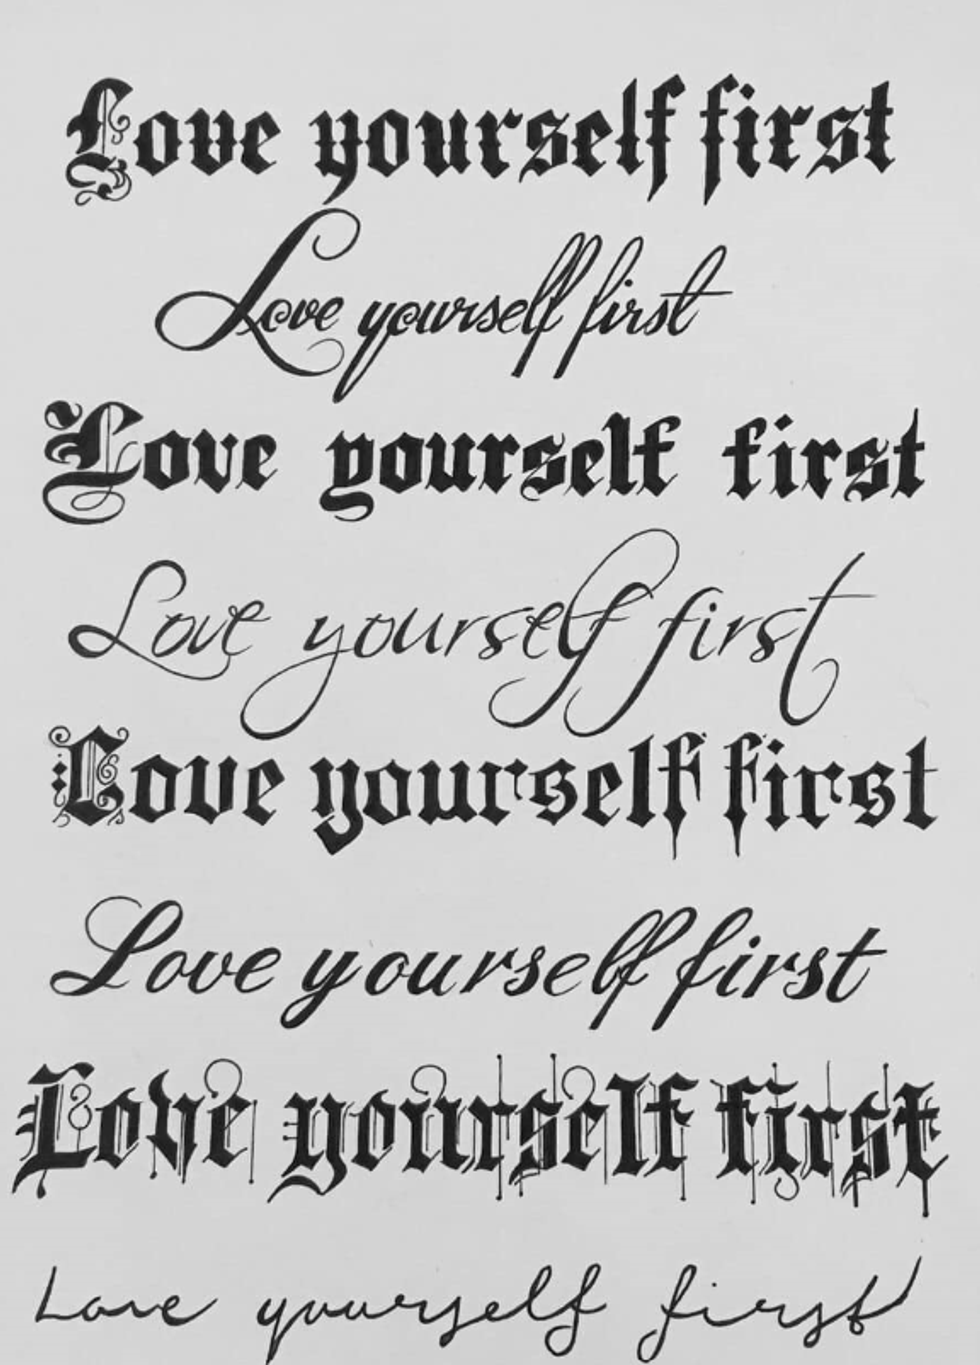 Love yourself first
Love yourself first
Love yourself first
Love yourself first
Love yourself first
Love yourself first
Love yourself first
Love yourself first